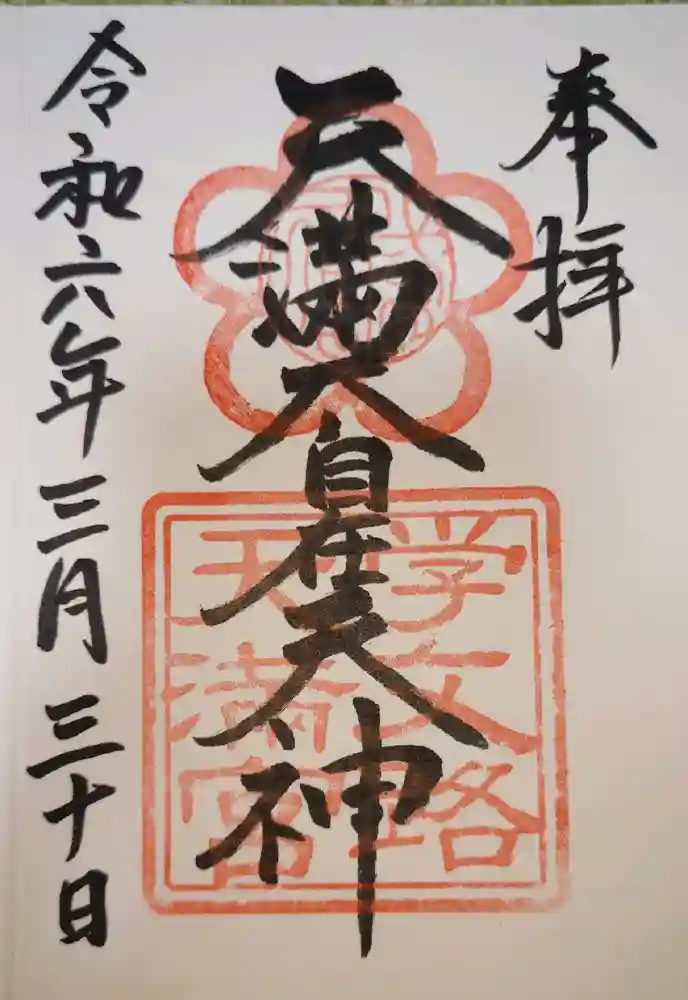 奉拝
天満大自在天神
学文路
天満宮
令和六年三月三十日